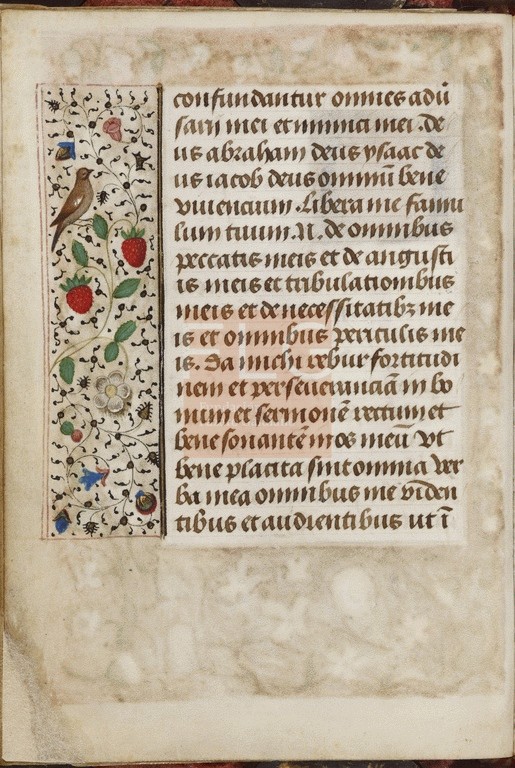 confundantur omnes adū
sarij mei et inimici mei. de
us abraham deus ysaac de
us iacob deus omniū bene
viuencium. Libera me famu
lum tuum. N. de omnibus
peccatis meis et de angusti
is meis et tribulationibus
meis et de necessitatibz me
is et omnibus periculis me
is. Da michi robur fortitudi
nem et perseueranciā in bo
num et sermonē rectum et
bene sonantē in os meū vt
bene placita sint omnia ver
ba mea omnibus me viden
tibus et audientibus ut ī